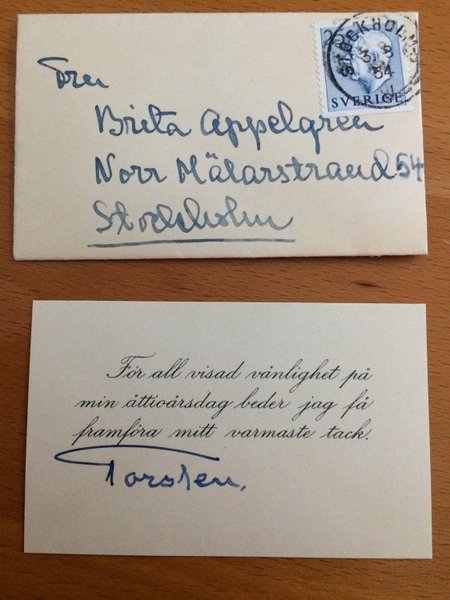 STOCKHOLM
54
SVERIGE
Fru
Brita Appelgren
Norr Mälarstrand 54
Stockholm
För all visad vänlighet på
min åttioårsdag beder jag få
framföra mitt varmaste tack.
Torsten.